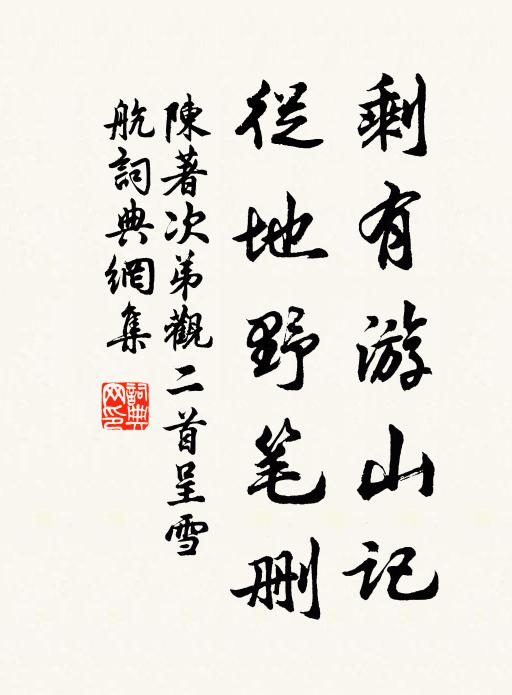 剩有游山记
從地野笔删
陳著次弟觀二首呈雪
航詞典網集
詞典网印